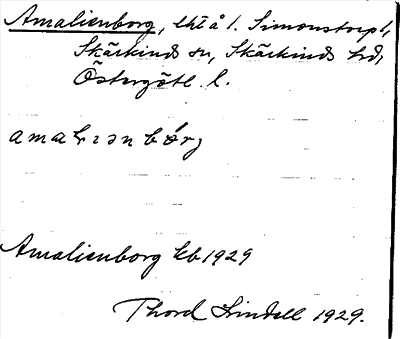 Amalienborg, lht å 1. Simonstorp 1,
Skärkinds sn, Skärkinds hd,
Östergötl. l.
Amalienborg kb 1929
Thord Lindell 1929.